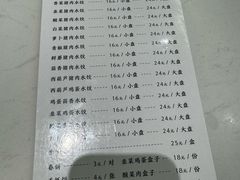 香菜猪肉水饺 16元/小盘 24元/大盘
韭菜猪肉水饺 16元/小盘 24元/大盘
酸菜猪肉水饺 16元/小盘 24元/大盘
白菜猪肉水饺 16元/小盘 24元/大盘
萝卜猪肉水饺 16元/小盘 24元/大盘
香菇猪肉水饺 16元/小盘 24元/大盘
鲜椒猪肉水饺 16元/小盘 24元/大盘
茴香猪肉水饺 16元/小盘 24元/大盘
西葫芦猪肉水饺 16元/小盘 24元/大盘
西葫芦鸡蛋水饺 16元/小盘 24元/大盘
鸡蛋茴香水饺 16元/小盘 24元/大盘
韭菜鸡蛋水饺 16元/小盘 24元/大盘
16元/小盘 24元/大盘
25元/盒
春饼 3元/对 韭菜鸡蛋盒子 18元/份
4元/张 酸菜肉盒子 18元/份